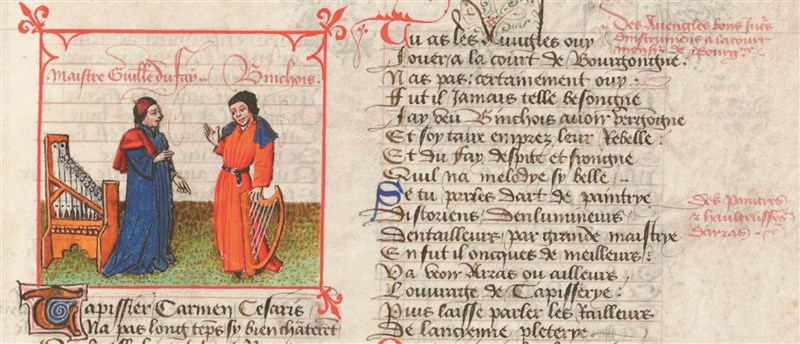 Maistre Guille du fay.. Binchois.
Tapissier, Carmen, Cesaris
Na pas long temps sy bien chanterent
Tu as les avugles ouy
Jouer a la court de Bourgongne.
Nas pas: certainement ouy.
Fut il Jamais telle besongne
Jay veu Binchois avoir vergongne
Et soy taire emprez leur Rebelle.
Et du fay despite et frongne
Quil na melodye sy belle..
Se tu parles dart de paintrye
Distoriens, Denlumineurs
Dentailleurs, par grande maistrye
En fut il oncques de meilleurs:
Va veoir Arras ou ailleurs
Louvraige de Tapisserye:
Puis laisse parler les Railleurs
De lancienne pleterye.
Des Avengles bons
a la court
de Bourg
Des Paintres
darras.